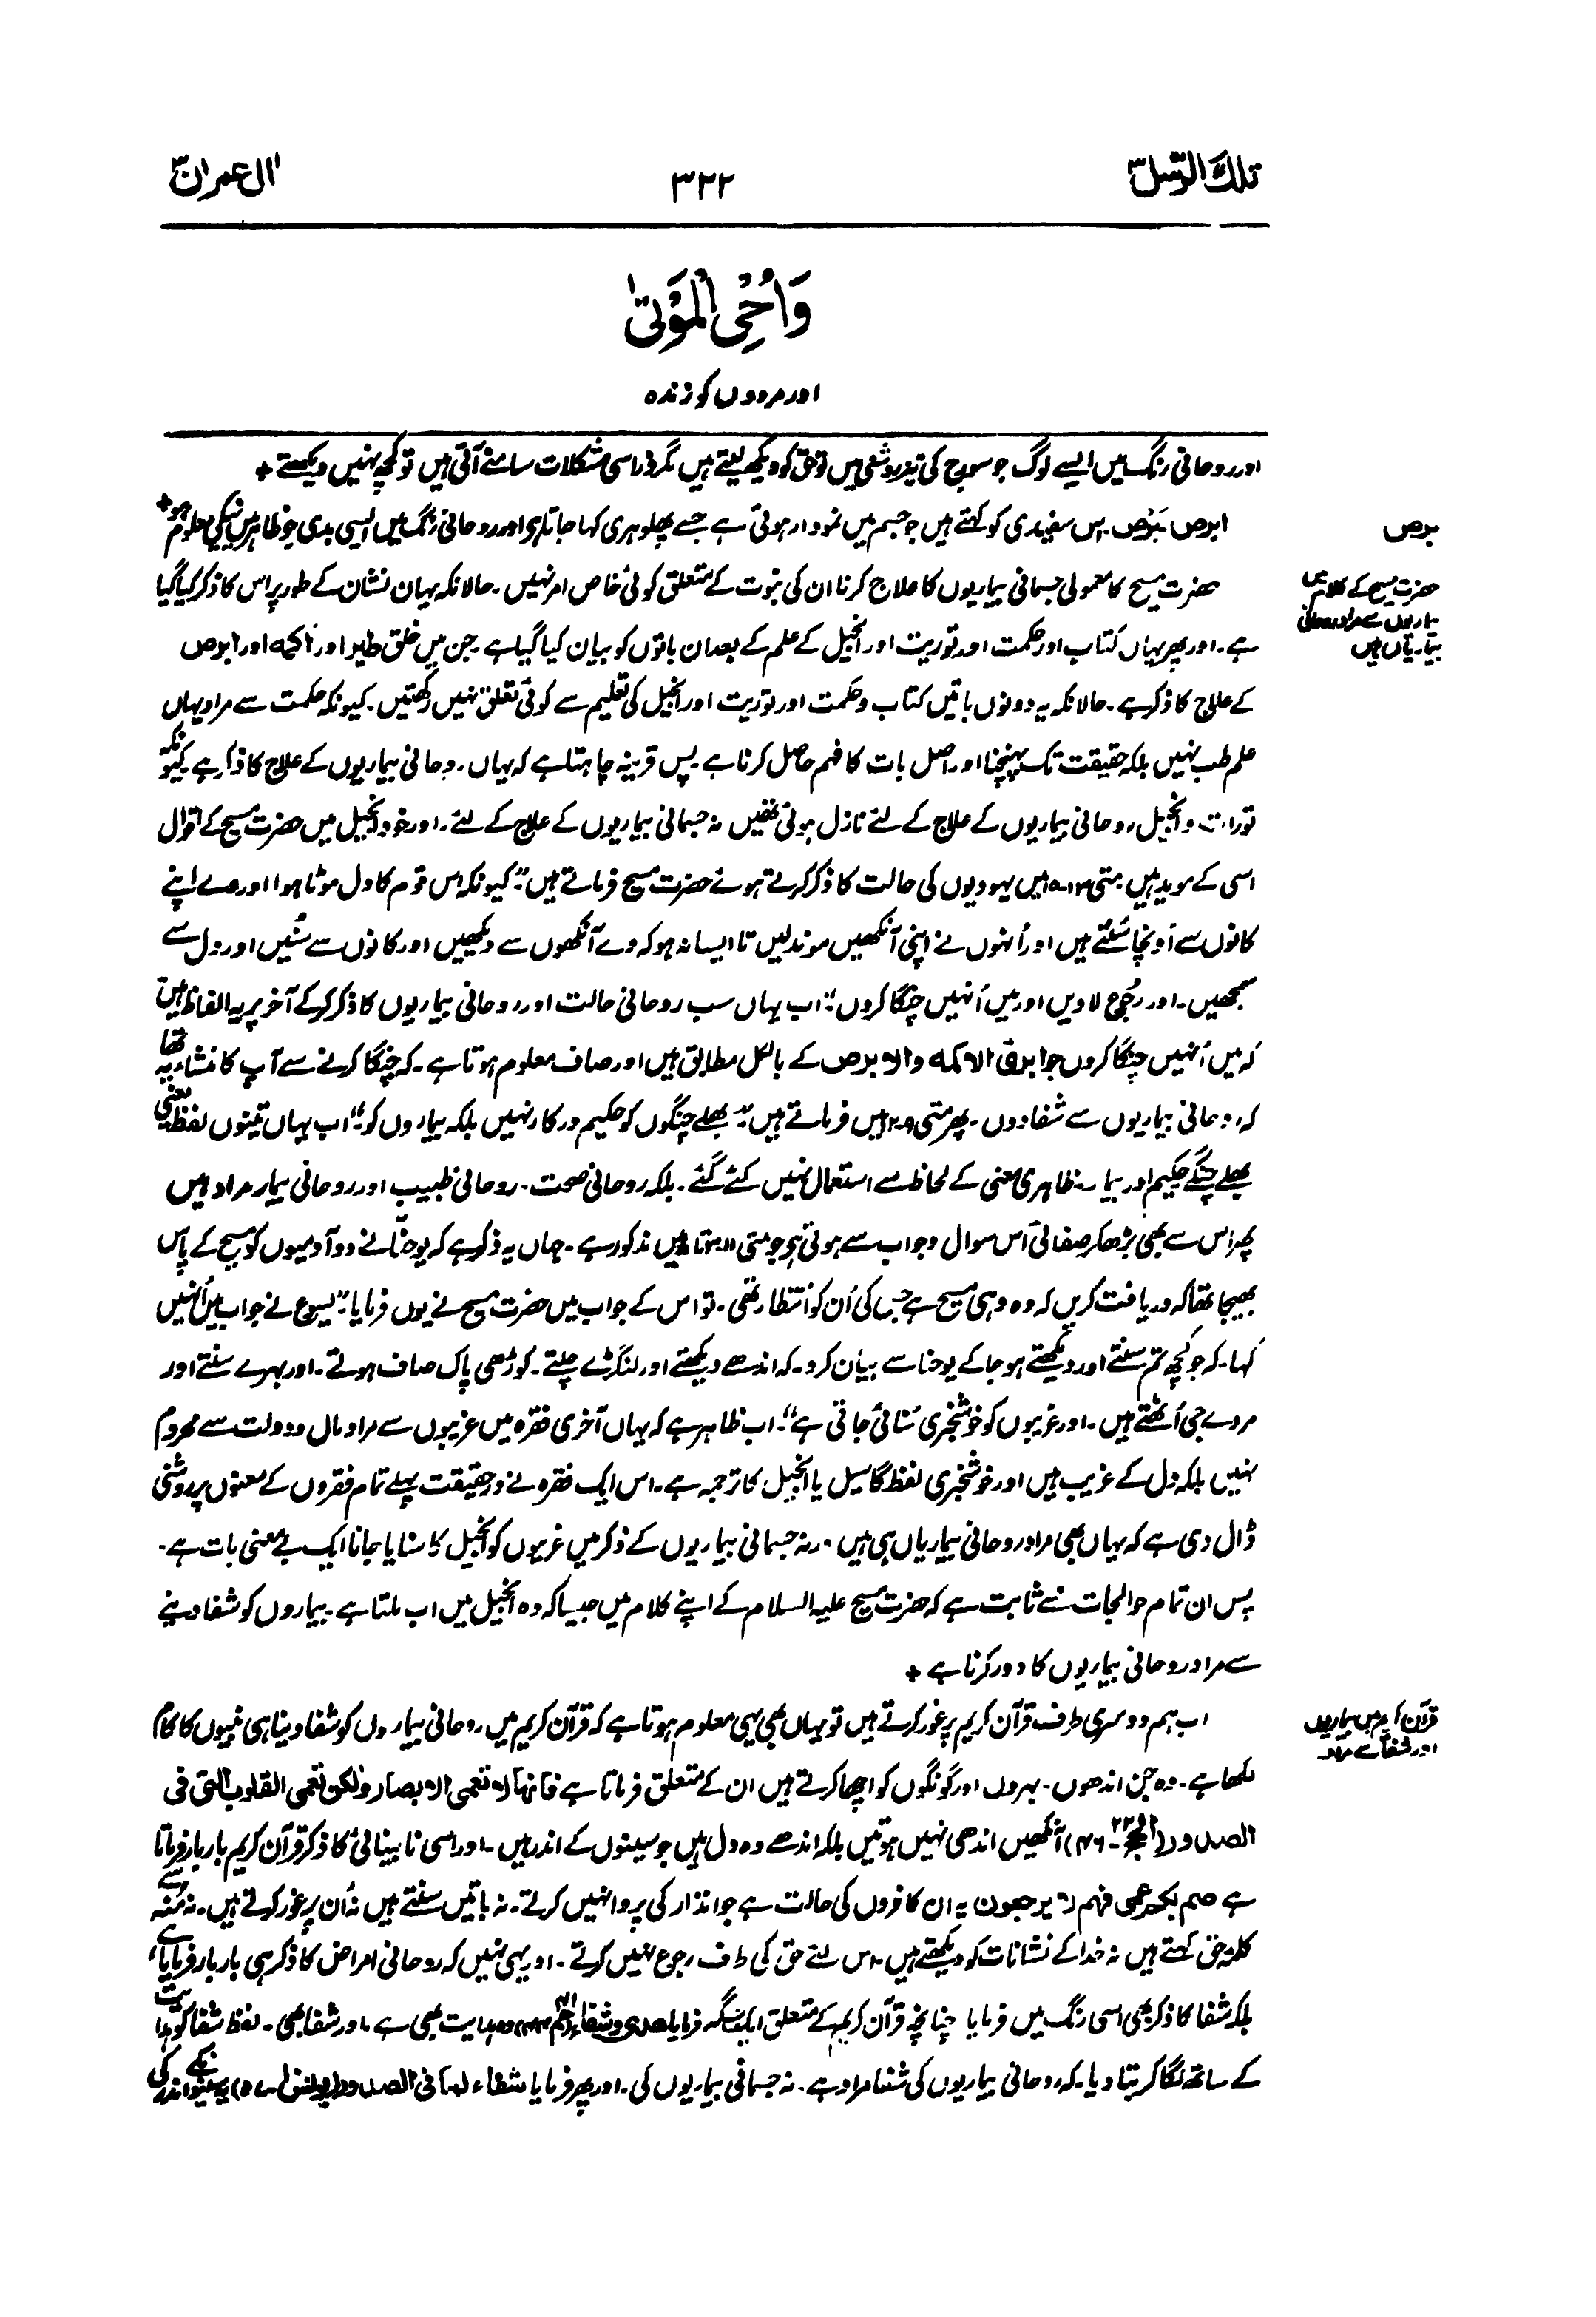 تلک الرسل ۳
۳۲۲
اٰل عمران ۳
وَاُحْیِ الْمَوْتٰی
اور مردوں کو زندہ
اور روحانی رنگ میں ایسے لوگ جو سورج کی تیز روشنی میں تو حق کو دیکھ لیتے ہیں مگر ذرا سی مشکلات سامنے آتی ہیں تو کچھ نہیں دیکھتے +
برص
ابرص بَرَص۔ اس سفیدی کو کہتے ہیں جو جسم میں نمودار ہوتی ہے جسے پھلوہری کہا جاتا ہے اور روحانی رنگ میں ایسی بدی جو ظاہر میں نیکی معلوم ہو +
حضرت مسیح کے کلام میں
بیماریوں سے مراد روحانی
بیماریاں ہیں
حضرت مسیح کا معمولی جسمانی بیماریوں کا علاج کرنا ان کی نبوت کے متعلق کوئی خاص امر نہیں۔ حالانکہ یہاں نشان کے طور پر اس کا ذکر کیا گیا
ہے۔ اور پھر یہاں کتاب اور حکمت اور توریت اور انجیل کے علم کے بعد ان باتوں کو بیان کیا گیا ہے جن میں خلق طیر اور اکمہ اور ابرص
کے علاج کا ذکر ہے۔ حالانکہ یہ دونوں باتیں کتاب و حکمت اور توریت اور انجیل کی تعلیم سے کوئی تعلق نہیں رکھتیں۔ کیونکہ حکمت سے مراد یہاں
علم طب نہیں بلکہ حقیقت تک پہنچنا اور اصل بات کا فہم حاصل کرنا ہے۔ پس قرینہ چاہتا ہے کہ یہاں روحانی بیماریوں کے علاج کا ذکر ہے کیونکہ
تورات و انجیل روحانی بیماریوں کے علاج کے لئے نازل ہوئی تھیں نہ جسمانی بیماریوں کے علاج کے لئے۔ اور خود انجیل میں حضرت مسیح کے اقوال
اسی کے موید ہیں۔ متی ۱۳۔۱۵ میں یہودیوں کی حالت کا ذکر کرتے ہوئے حضرت مسیح فرماتے ہیں "کیونکہ اس قوم کا دل موٹا ہوا اور وے اپنے
کانوں سے اونچا سُنتے ہیں اور اُنہوں نے اپنی آنکھیں موندلیں تا ایسا نہ ہو کہ وے آنکھوں سے دیکھیں اور کانوں سے سُنیں اور دل سے
سمجھیں۔ اور رجوع لاویں اور میں اُنہیں چنگا کروں" اب یہاں سب روحانی حالت اور روحانی بیماریوں کا ذکر کر کے آخر پر یہ الفاظ ہیں
کہ میں اُنہیں چنگا کروں جو ابرئ الاکمہ والابرص کے بالکل مطابق ہیں اور صاف معلوم ہوتا ہے۔ کہ چنگا کرنے سے آپ کا منشاء یہ تھا
کہ روحانی بیماریوں سے شفا دوں۔ پھر متی ۹۔۱۲ میں فرماتے ہیں "بھلے چنگوں کو حکیم درکار نہیں بلکہ بیماروں کو" اب یہاں تینوں لفظ یعنی
بھلے چنگے حکیم اور بیمار ظاہری معنی کے لحاظ سے استعمال نہیں کئے گئے۔ بلکہ روحانی صحت۔ روحانی طبیب اور روحانی بیمار مراد ہیں
پھر اس سے بھی بڑھکر صفائی اُس سوال و جواب سے ہوتی ہے جو متی میں مذکور ہے۔ جہاں یہ ذکر ہے کہ یوحنّا نے دو آدمیوں کو مسیح کے پاس
بھیجا تھا کہ دریافت کریں کہ وہ وہی مسیح ہے جس کی اُن کو انتظار تھی۔ تو اس کے جواب میں حضرت مسیح نے یوں فرمایا "یسوع نے جواب میں اُنہیں
کہا۔ کہ جو کچھ تم سنتے اور دیکھتے ہو جا کے یوحنا سے بیان کرو۔ کہ اندھے دیکھتے اور لنگڑے چلتے۔ کوڑھی پاک صاف ہوتے۔ اور بہرے سنتے اور
مردے جی اُٹھتے ہیں۔ اور غریبوں کو خوشخبری سُنائی جاتی ہے"۔ اب ظاہر ہے کہ یہاں آخری فقرہ میں غریبوں سے مراد مال و دولت سے محروم
نہیں بلکہ دل کے غریب ہیں اور خوشخبری لفظ گاسپل یا انجیل کا ترجمہ ہے۔ اس ایک فقرہ نے درحقیقت پہلے تمام فقروں کے معنوں پر روشنی
ڈال دی ہے کہ یہاں بھی مراد روحانی بیماریاں ہی ہیں ورنہ جسمانی بیماریوں کے ذکر میں غریبوں کو انجیل کا سنایا جانا ایک بے معنی بات ہے۔
پس ان تمام حوالجات سے ثابت ہے کہ حضرت مسیح علیہ السلام کے اپنے کلام میں جیسا کہ وہ انجیل میں اب ملتا ہے۔ بیماروں کو شفا دینے
سے مراد روحانی بیماریوں کا دور کرنا ہے +
قرآن کریم میں بیماریوں
اور شفا سے مراد
اب ہم دوسری طرف قرآن کریم پر غور کرتے ہیں تو یہاں بھی یہی معلوم ہوتا ہے کہ قرآن کریم میں روحانی بیماروں کو شفا دینا ہی نبیوں کا کام
لکھا ہے۔ وہ جن اندھوں۔ بہروں اور گونگوں کو اچھا کرتے ہیں ان کے متعلق فرماتا ہے فانھا لا تعمی الابصار ولکن تعمی القلوب التی فی
الصدور (الحج ۲۲۔۴۶) آنکھیں اندھی نہیں ہوتیں بلکہ اندھے وہ دل ہیں جو سینوں کے اندر ہیں۔ اور اسی نابینائی کا ذکر قرآن کریم بار بار فرماتا
ہے صم بکم عمی فہم لا یرجعون یہ ان کافروں کی حالت ہے جو انذار کی پروا نہیں کرتے۔ نہ باتیں سنتے ہیں نہ اُن پر غور کرتے ہیں۔ نہ مُنہ سے
کلمۂ حق کہتے ہیں نہ خدا کے نشانات کو دیکھتے ہیں۔ اس لئے حق کی طرف رجوع نہیں کرتے۔ اور یہی نہیں کہ روحانی امراض کا ذکر ہی بار بار فرمایا ہے
بلکہ شفا کا ذکر بھی اسی رنگ میں فرمایا چنانچہ قرآن کریم کے متعلق ایک جگہ فرمایا ھدی و شفاء (حٰم ۴۱۔۴۴) وہ ہدایت بھی ہے۔ اور شفا بھی۔ لفظ شفا کو ہدایت
کے ساتھ لگا کر بتا دیا۔ کہ روحانی بیماریوں کی شفا مراد ہے۔ نہ جسمانی بیماریوں کی۔ اور پھر فرمایا شفاء لما فی الصدور (یونس ۱۰۔۵۷) یہ سینوں کے اندر کی